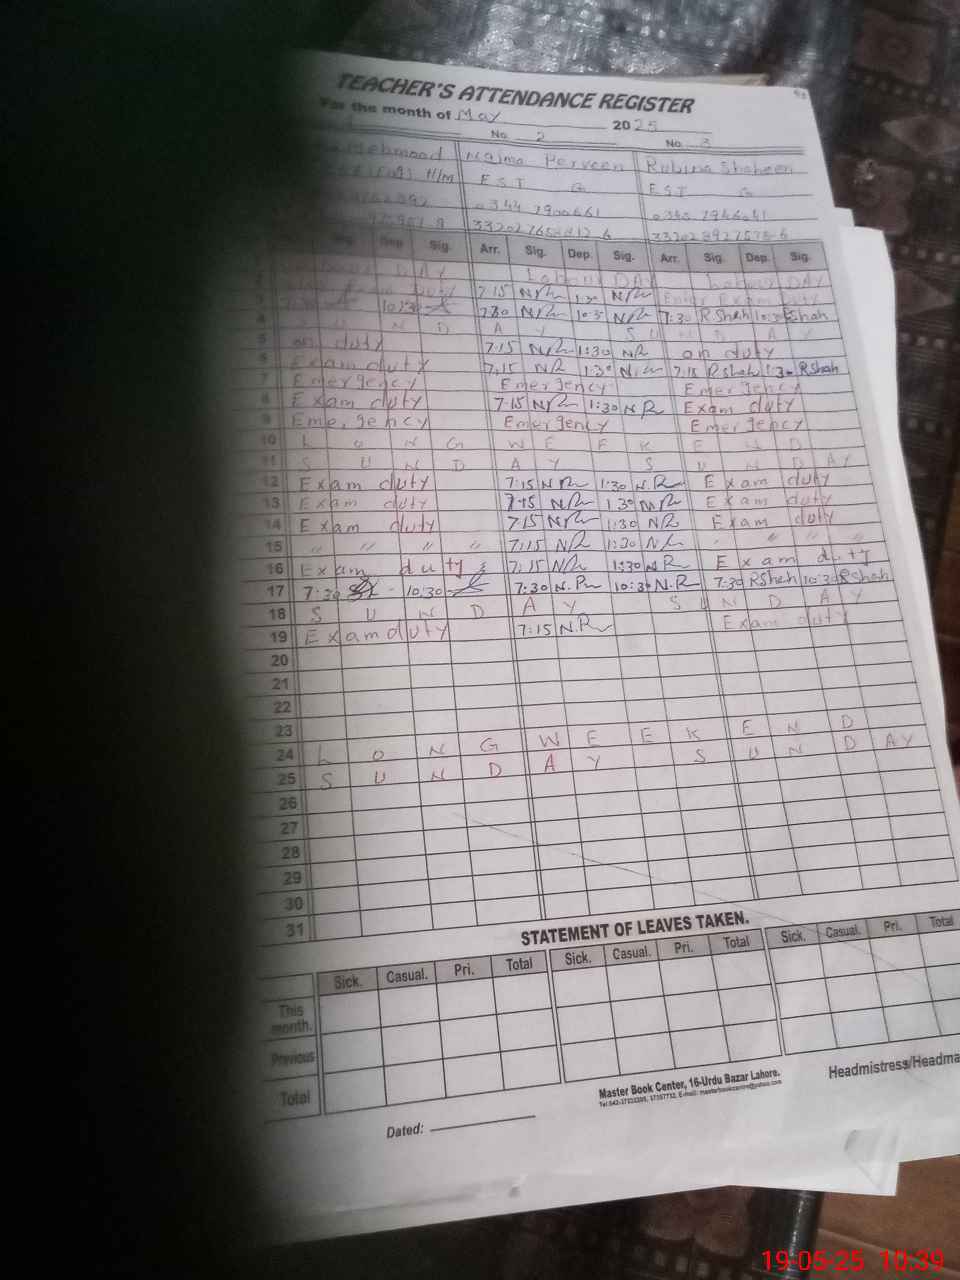 TEACHER'S ATTENDANCE REGISTER
For the month of May 2025
No. 2 No. 3
Mehmood Najma Perveen Rubina Shaheen
H/M EST G EST G
0344 7900661
Sig. Arr. Sig. Dep. Sig. Arr. Sig. Dep. Sig.
DAY Labour DAY Labour DAY
duty 7:15 N/R 1:30 N/R Exam duty
10:30 7:30 N/R 10:30 N/R 7:30 R Shah 10:30 R Shah
4 S U N D A Y S U N D A Y
5 on duty 7:15 N/R 1:30 NR on duty
6 Exam duty 7:15 NR 1:30 N.R 7:15 R Shah 1:30 R Shah
7 Emergency Emergency Emergency
8 Exam duty 7:15 N/R 1:30 N R Exam duty
9 Emergency Emergency Emergency
10 L O N G W E E K E N D
11 S U N D A Y S U N D A Y
12 Exam duty 7:15 N R 1:30 N.R Exam duty
13 Exam duty 7:15 N/R 1:30 N/R Exam duty
14 Exam duty 7:15 N/R 1:30 NR Exam duty
15 " " " " 7:15 N/R 1:30 N/R " " "
16 Exam duty 7:15 N/R 1:30 N R Exam duty
17 7:30 - 10:30 7:30 N.R 10:30 N.R 7:30 RShah 10:30 RShah
18 S U N D A Y S U N D A Y
19 Exam duty 7:15 N.R Exam duty
20
21
22
23
24 L O N G W E E K E N D
25 S U N D A Y S U N D A Y
26
27
28
29
30
31
STATEMENT OF LEAVES TAKEN.
Sick. Casual. Pri. Total Sick. Casual. Pri. Total Sick. Casual. Pri. Total
This month.
Previous
Total
Master Book Center, 16-Urdu Bazar Lahore.
Headmistress/Headma
Dated:
19-05-25 10:39